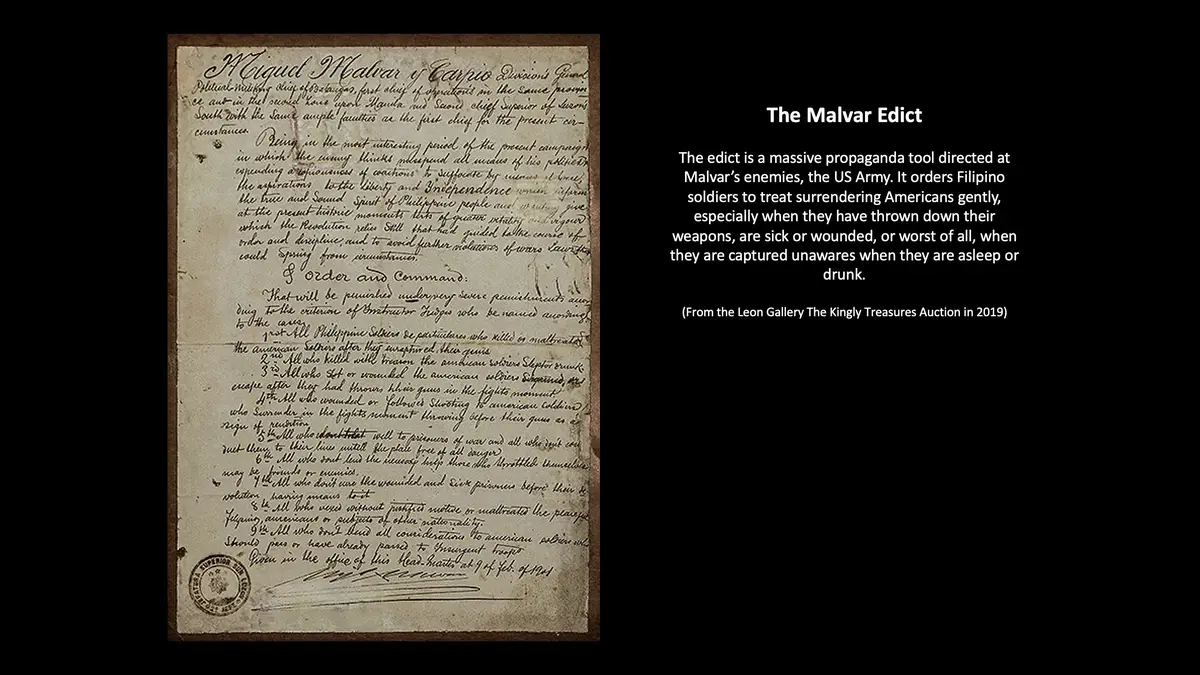 Miguel Malvar y Carpio Division's General
Political-Military chief of Batangas, first chief of operations in the same provin-
ce and in the second zone upon Manila and Second chief Superior of Luzon's
South with the same ample faculties as the first chief for the present cir-
cumstances.
Being in the most interesting period of the present campaign
in which the enemy thinks all means of his political
expending a copiousness of coactions to suffocate by means of
the aspirations to the liberty and Independence which
the true and sound Spirit of Philippine people and give
at the present historic moments, of greater vitality and vigour
which the Revolution relies Still that had guided to the course of
order and discipline, and to avoid further violations of wars Laws that
could Spring from circumstances.
I order and Command:
That will be punished under very severe punishments accor-
ding to the criterion of Instructor Judges who be named according
to the cases.
1rst All Philippine Soldiers de particulares who killed or maltreated
the american Soldiers after they their guns
2nd All who killed with treason the american Soldiers Slept or drunk.
3rd All who Shot or wounded the american soldiers
escape after they had throws their guns in the fights moment
4th All who wounded or follows Shooting to american Soldiers
who Surrender in the fights moment throwing before their guns as a
sign of rendition.
5th All who well to prisoners of war and all who don't con-
duct them to their lines untill the place free of all danger.
6th All who dont lend the necessary helps those who throttled themselves
may be friends or enemies.
7th All who don't cure the wounded and Sick prisoners before their de-
volution, having means to it
8th All who vexes without justified motive or maltreated the peaceful
Filipino, americans or subjects of other nationality.
9th All who don't lend all considerations to american soldiers who
Should pass or have already passed to Insurgent troops
Given in the office of this Head-quarter at 9 of Feb. of 1901
SUPERIOR
The Malvar Edict
The edict is a massive propaganda tool directed at
Malvar’s enemies, the US Army. It orders Filipino
soldiers to treat surrendering Americans gently,
especially when they have thrown down their
weapons, are sick or wounded, or worst of all, when
they are captured unawares when they are asleep or
drunk.
(From the Leon Gallery The Kingly Treasures Auction in 2019)